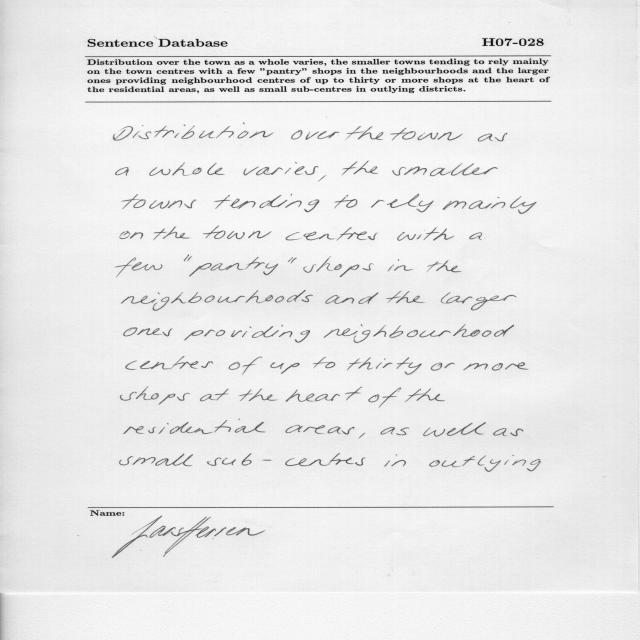 Sentence Database H07-028
Distribution over the town as a whole varies, the smaller towns tending to rely mainly
on the town centres with a few "pantry" shops in the neighbourhoods and the larger
ones providing neighbourhood centres of up to thirty or more shops at the heart of
the residential areas, as well as small sub-centres in outlying districts.
Distribution over the town as
a whole varies, the smaller
towns tending to rely mainly
on the town centres with a
few "pantry" shops in the
neighbourhoods and the larger
ones providing neighbourhood
centres of up to thirty or more
shops at the heart of the
residential areas, as well as
small sub-centres in outlying
Name: